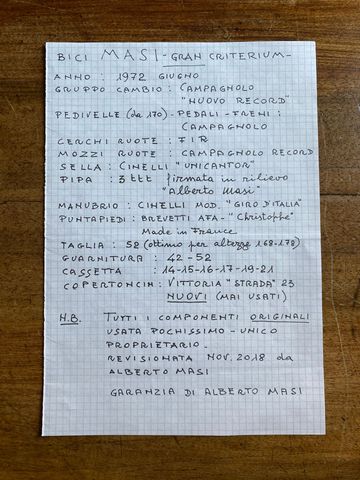 BICI MASI - GRAN CRITERIUM -
ANNO : 1972 GIUGNO
GRUPPO CAMBIO : CAMPAGNOLO
"NUOVO RECORD"
PEDIVELLE (da 170) - PEDALI - FRENI :
CAMPAGNOLO
CERCHI RUOTE : FIR
MOZZI RUOTE : CAMPAGNOLO RECORD
SELLA : CINELLI "UNICANTOR"
PIPA : 3ttt firmata in rilievo
"Alberto Masi"
MANUBRIO : CINELLI MOD. "GIRO D'ITALIA"
PUNTAPIEDI : BREVETTI AFA - "Christophe"
Made in France
TAGLIA : 52 (ottimo per altezze 168-178)
GUARNITURA : 42 - 52
CASSETTA : 14-15-16-17-19-21
COPERTONCINI : VITTORIA "STRADA" 23
NUOVI (MAI USATI)
N.B. TUTTI I COMPONENTI ORIGINALI
USATA POCHISSIMO - UNICO
PROPRIETARIO.
REVISIONATA NOV. 2018 da
ALBERTO MASI
GARANZIA DI ALBERTO MASI